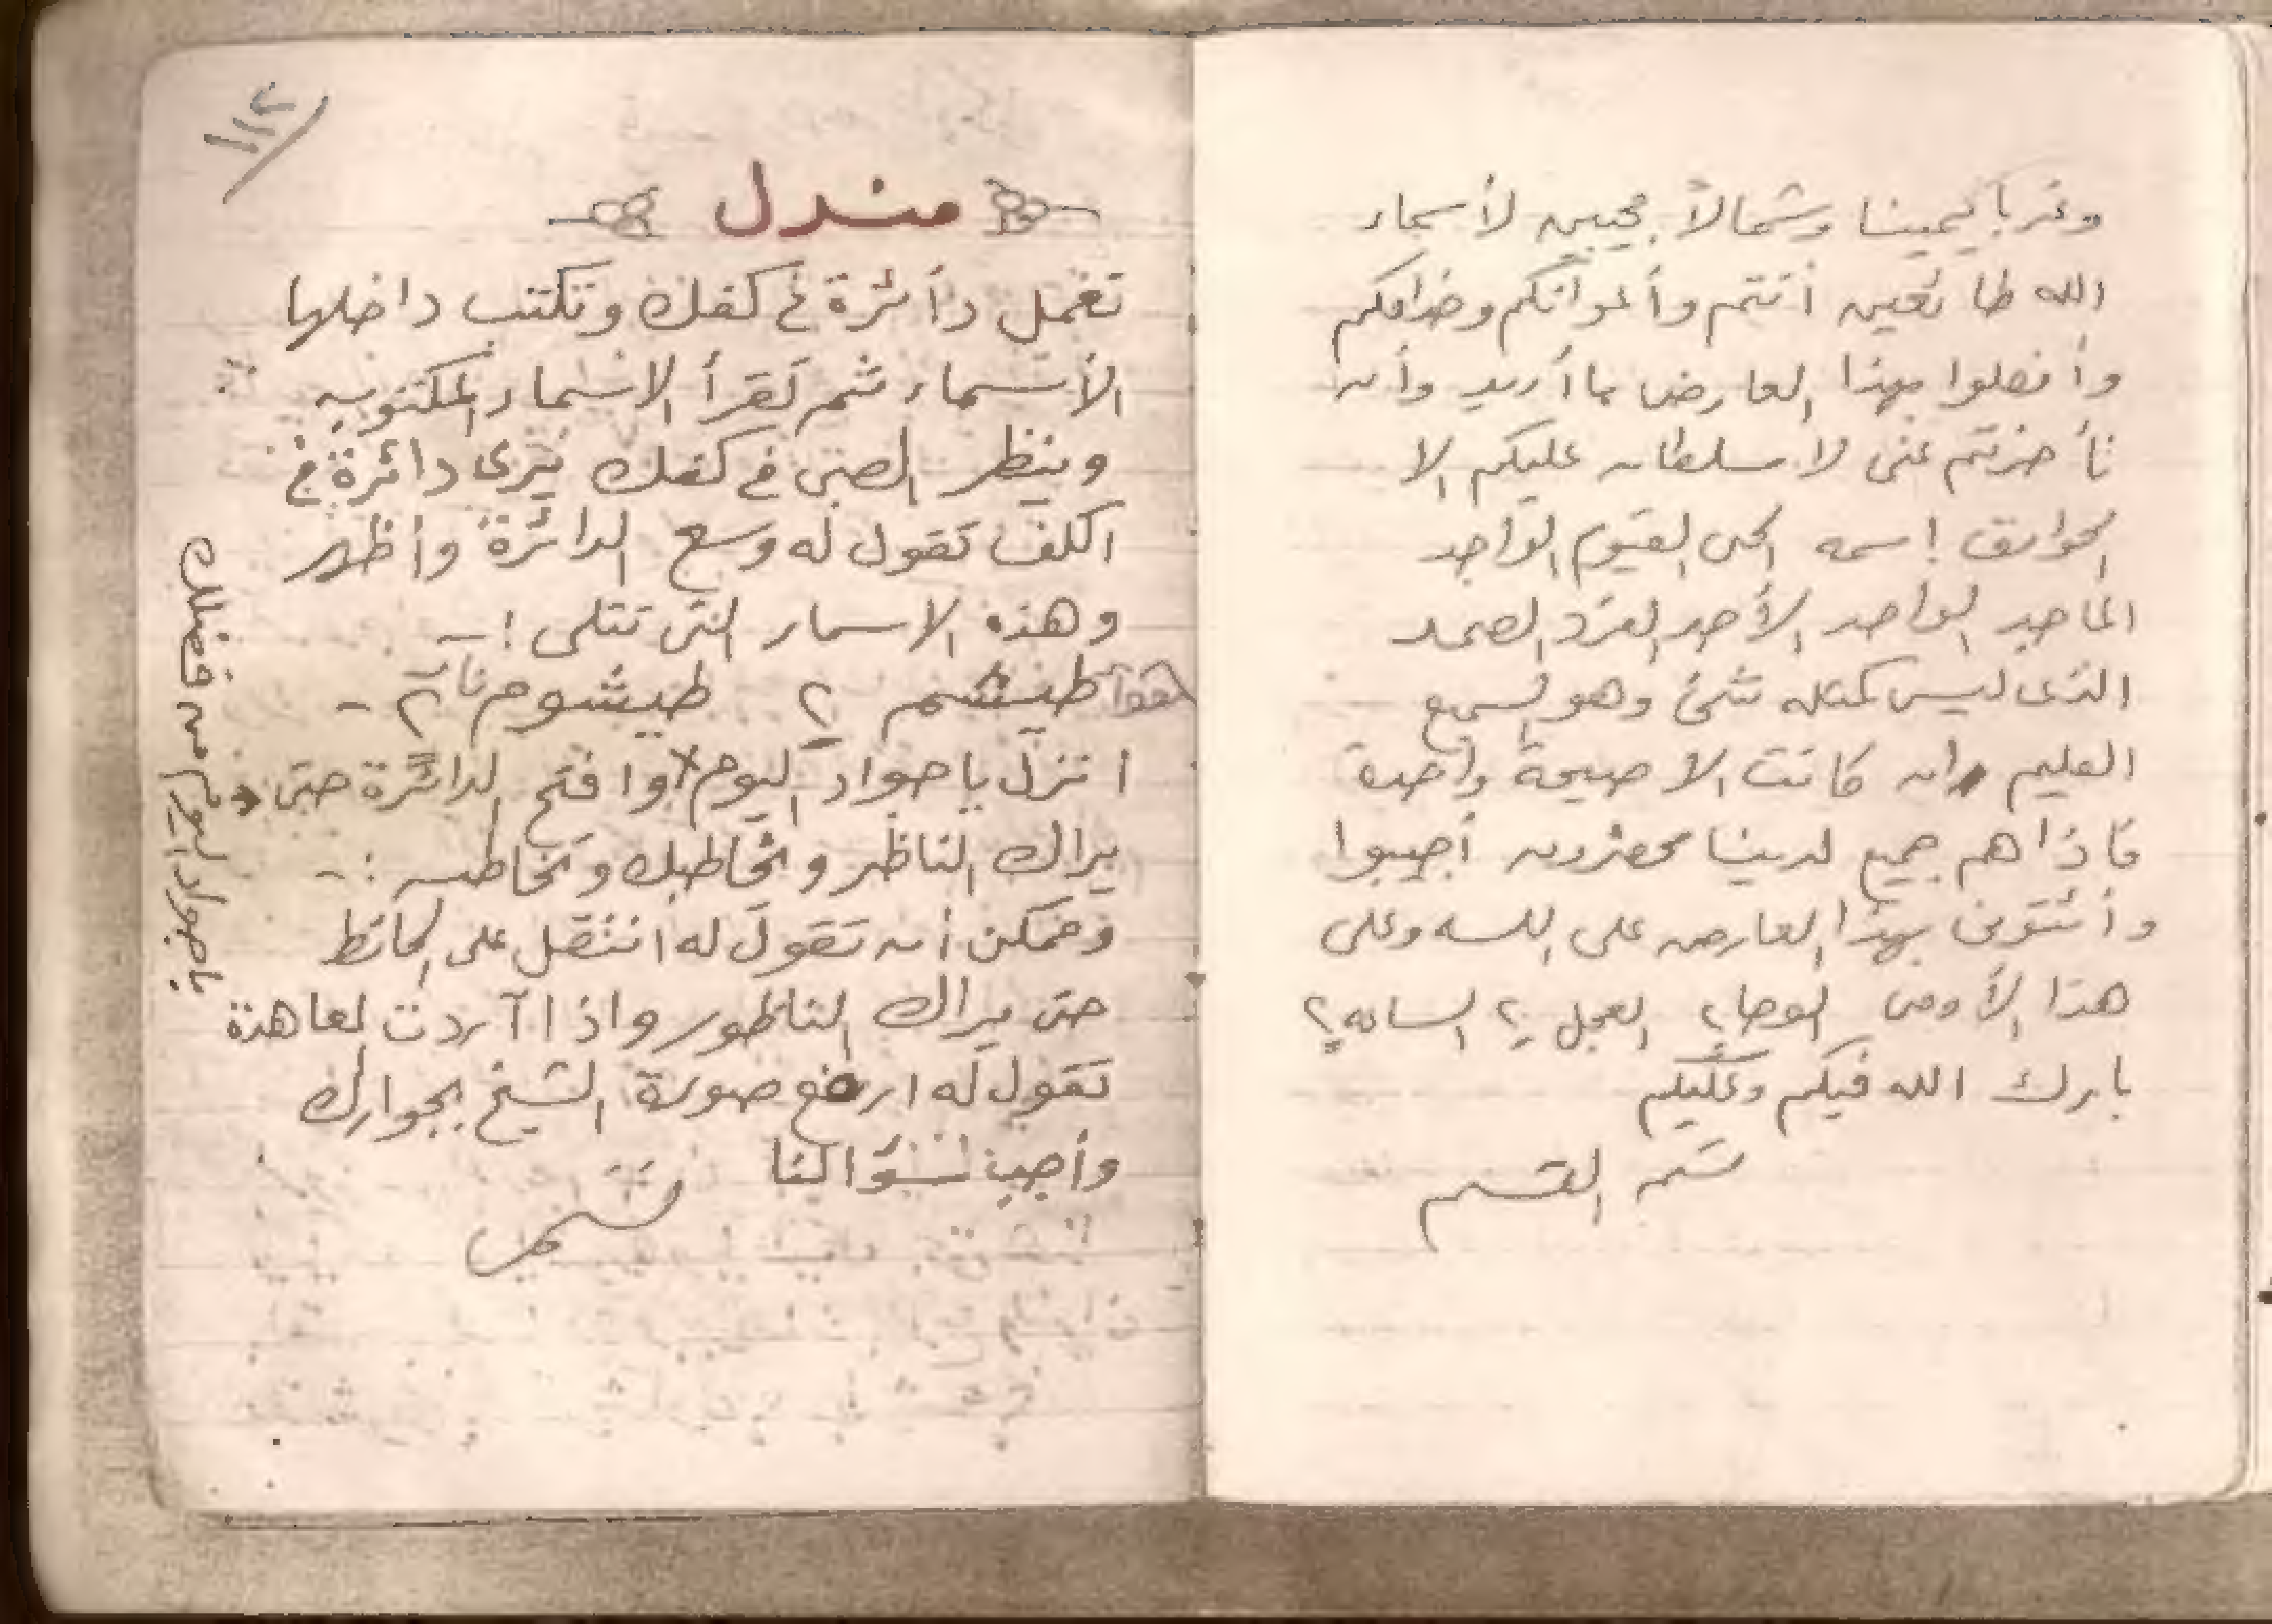 وغربا يمينا وشمالاً مجيبين لأسماء
الله طائعين أنتم وأعوانكم وخدامكم
وأفعلوا بهذا العارض ما أريد وأن
تأخرتم عنى لا سلطان عليكم الا
اسمه الحى القيوم الواجد
الماجد الواحد الأحد الفرد الصمد
الذى ليس كمثله شئ وهو السميع
العليم ان كانت الا صيحة واحدة
فاذا هم جميع لدينا محضرون أجيبوا
وأئتونى بهذا العارض على وعلى
هذا الوحا ٢ العجل ٢ الساعه ٢
بارك الله فيكم وعليكم
تم القسم
١١٢
مندل
تعمل دأئرة فى كفك وتكتب داخلها
الأسماء ثم تقرأ الاسماء المكتوبه
وينظر الصبى فى كفك يرى دائرة فى
الكف تقول له وسع الدائرة وأظهر
وهذه الاسماء التى تتلى :-
طيشم ٢ طيشوم ٢ -
انزل ياجواد اليوم وافتح الدائرة حتى
يراك الناظر ويخاطبك وتخاطبه :-
وممكن أن تقول له انتقل على الحائط
حتى يراك الناظور واذا آردت
تقول له ارفع صورة الشيخ بجوارك
وأجب لسؤالنا
تم
ياجواد اليوم من فضلك